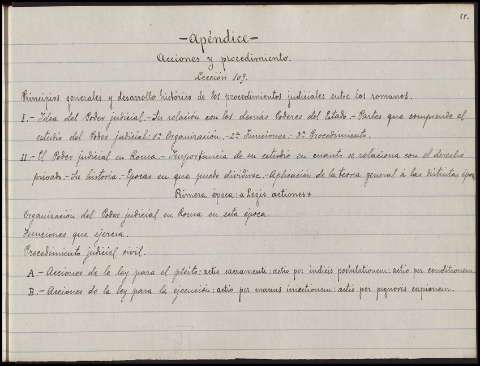 55.
-Apéndice-
Acciones y procedimiento.
Lección 103.
Principios generales y desarrollo histórico de los procedimientos judiciales entre los romanos.
I.- Idea del Poder judicial.- Su relación con los demás Poderes del Estado.- Partes que comprende el
estudio del Poder judicial: 1º Organización.- 2º Funciones.- 3º Procedimiento.
II.- El Poder judicial en Roma.- Importancia de su estudio en cuanto se relaciona con el derecho
privado.- Su historia.- Epocas en que puede dividirse.- Aplicación de la teoría general á las distintas épocas
Primera época: "Legis actiones"
Organización del Poder judicial en Roma en esta época.
Funciones que ejercía.
Procedimiento judicial civil.
A.- Acciones de la ley para el pleito: actio sacramento: actio per iudicis postulationem: actio per condictionem.
B.- Acciones de la ley para la ejecución: actio per manus iniectionem: actio per pignoris capionem.